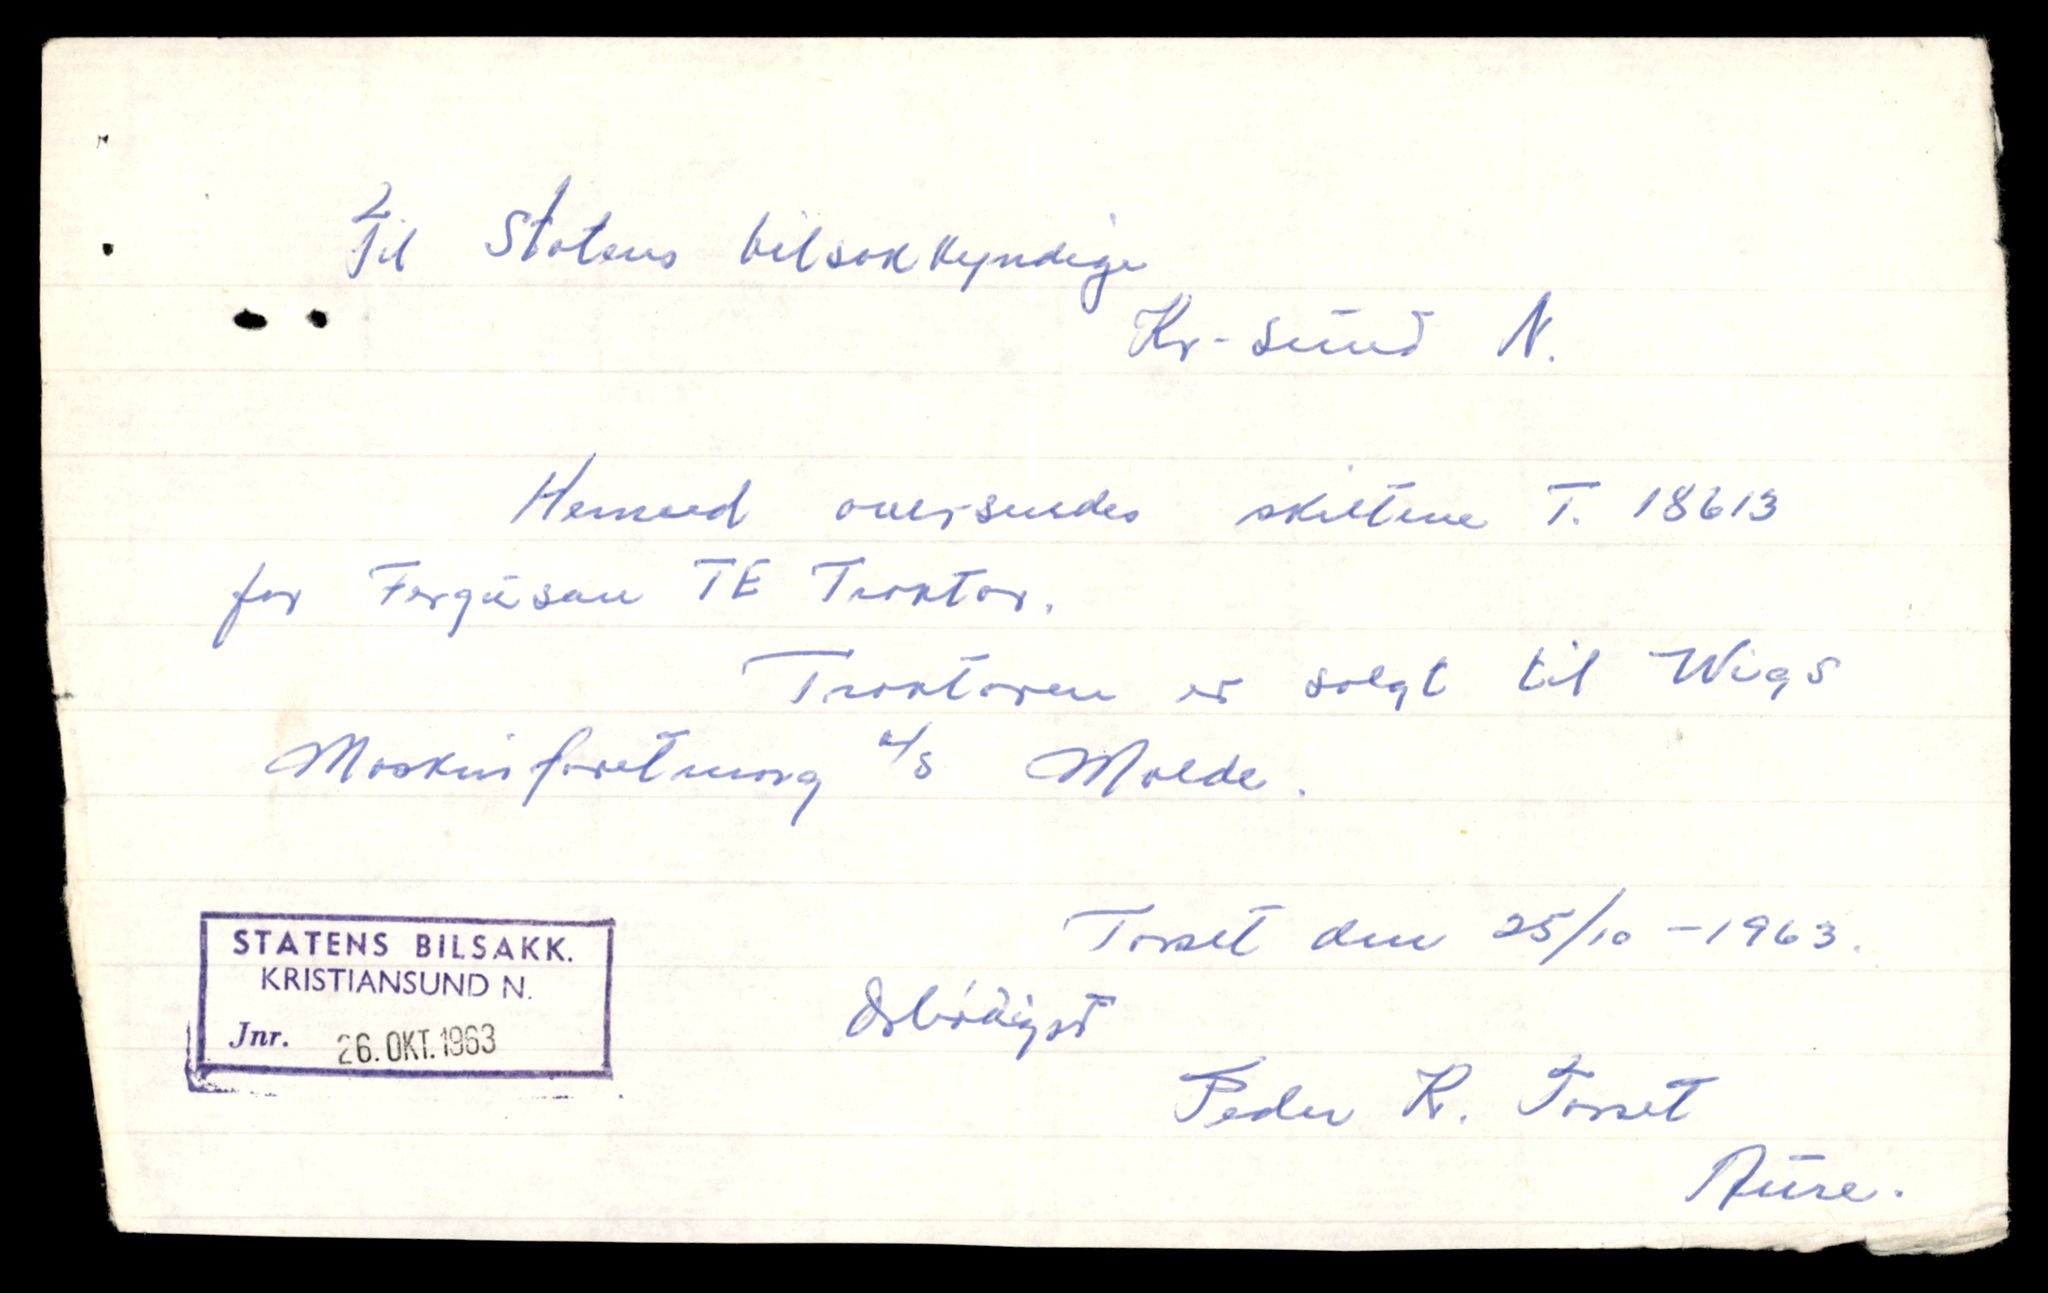 Til Statens bilsakkyndige
Kr-sund N.
Hermed oversendes skiltene T. 18613
for Ferguson TE Traktor.
Traktoren er solgt til Wigs
Maskinforetning a/s Molde.
Torset den 25/10 - 1963.
Ærbødigst
Peder K. Torset
Aure.
STATENS BILSAKK.
KRISTIANSUND N.
Jnr. 26. OKT. 1963